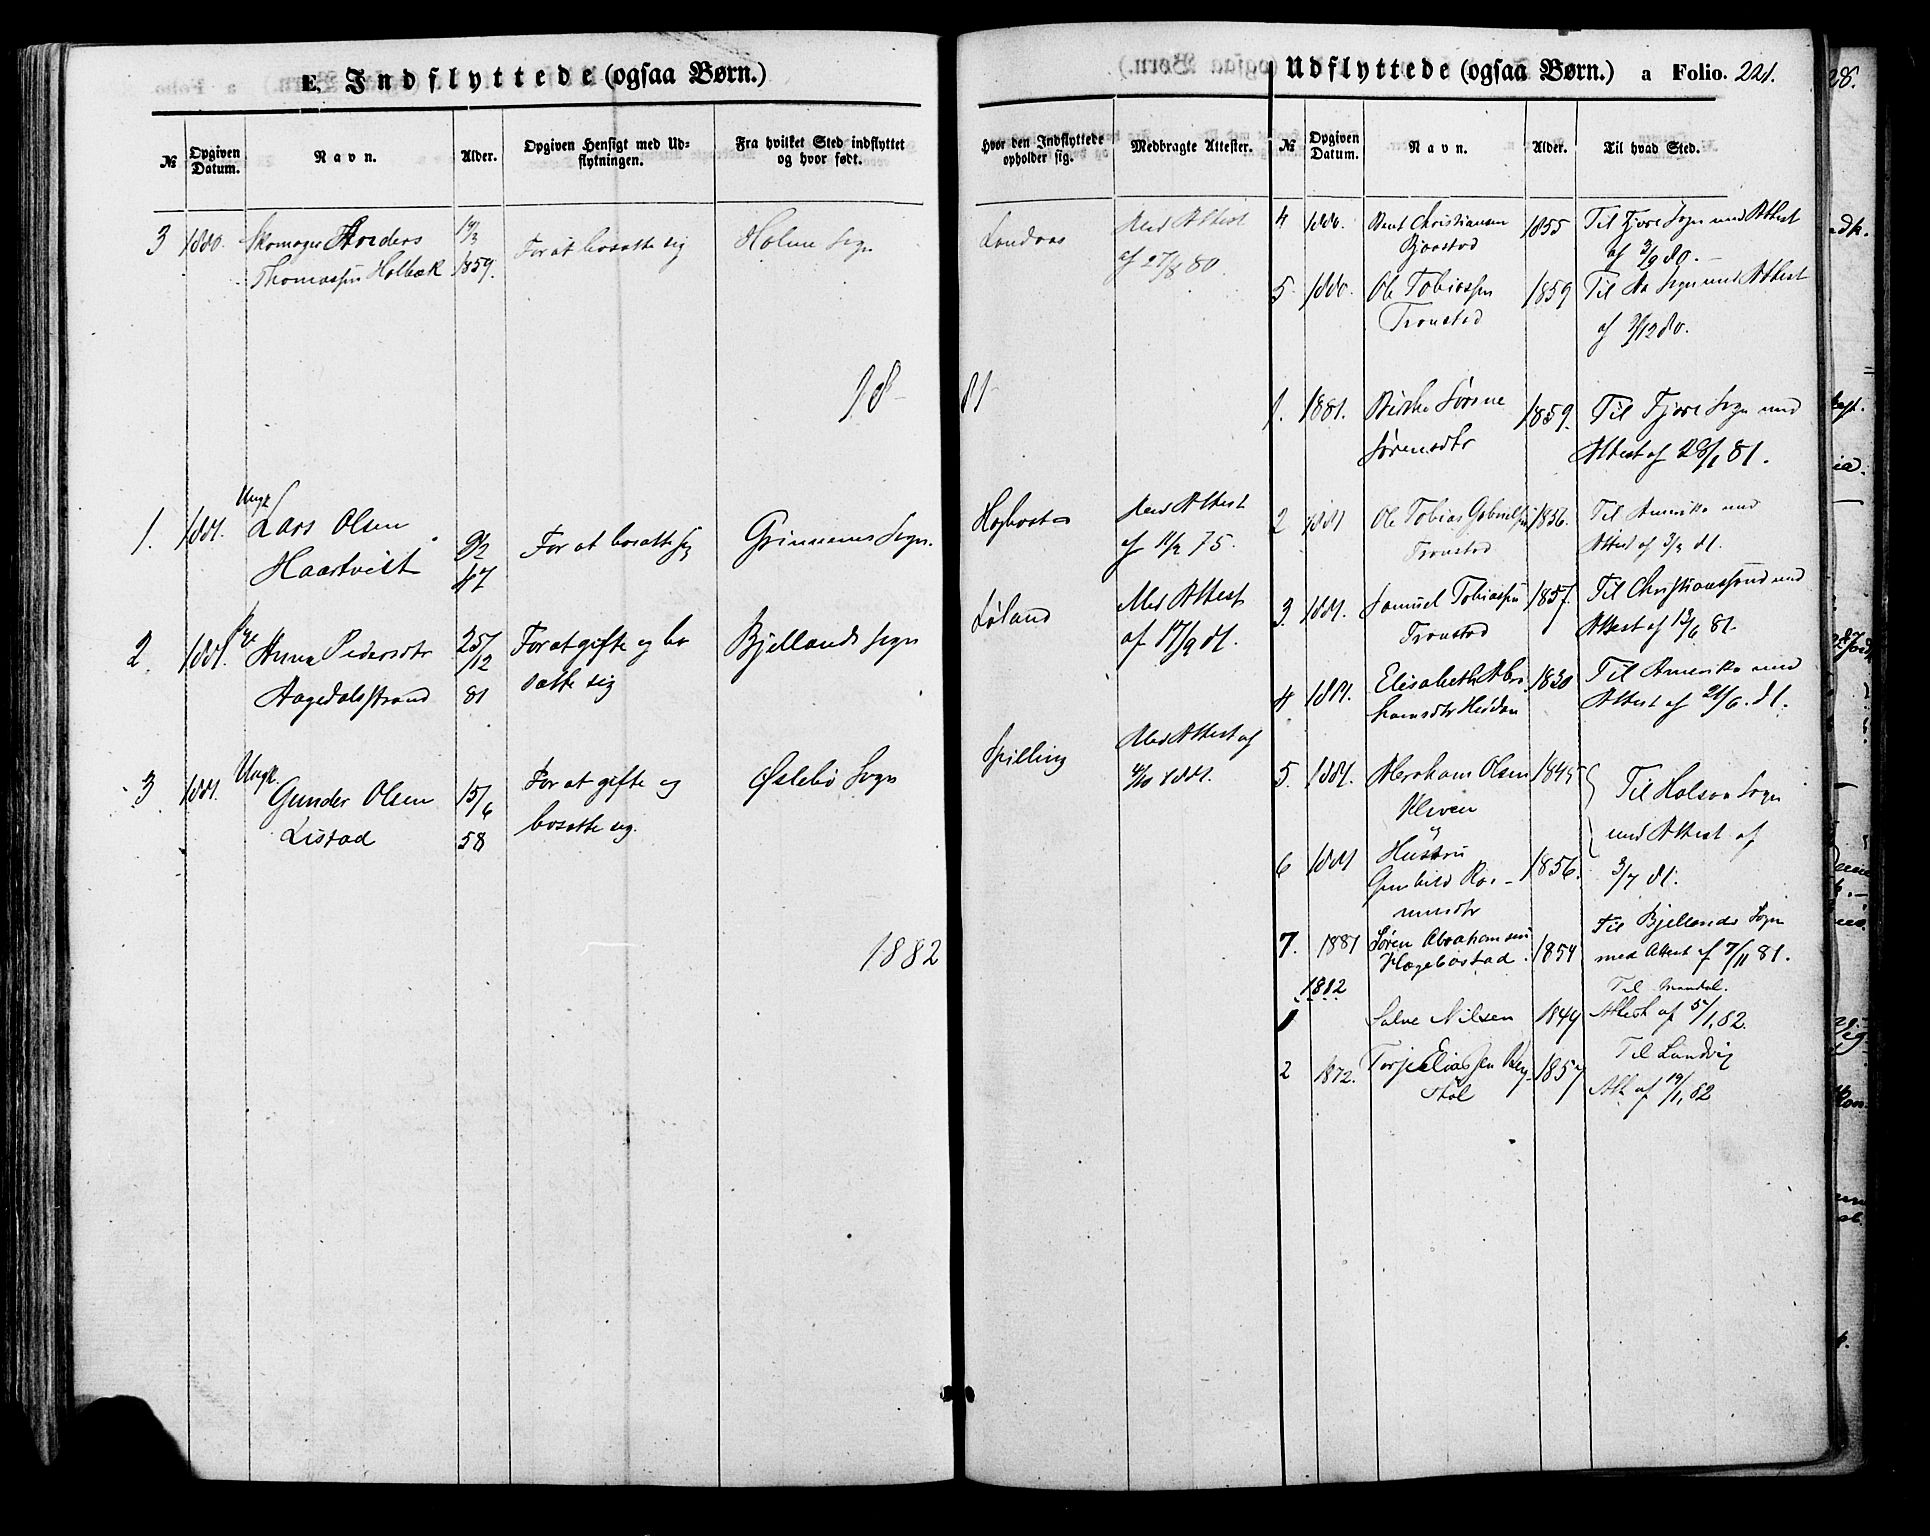 E. Indflyttede (ogsaa Børn.)
№
Opgiven Datum.
Navn.
Alder.
Opgiven Hensigt med Udflytningen.
Fra hvilket Sted indflyttet og hvor født.
3 1880. Skomager Anders 19/3 For at bosætte sig Holme Sogn
Thomassen Holbæk 1859.
18
1. 1881. Ungk Lars Olsen 9/2 For at bosætte sig Grinnems Sogn.
Haartveit 47
2. 1881. Pige Anna Pedersdtr 25/12 For at gifte og bo Bjellands Sogn
Aagedalsstrand 81 sætte sig
3 1881. Ungk. Gunder Olsen 15/6 For at gifte og Øslebø Sogn
Listad 58 bosætte sig.
1882
Udflyttede (ogsaa Børn.) a Folio. 221.
Hvor den Indflyttede opholder sig.
Medbragte Attester.
№
Opgiven Datum.
Navn.
Alder.
Til hvad Sted.
Landaas Med Attest
af 27/8 80.
81
Høgbost Med Attest
af 11/2 75.
Løland Med Attest
af 17/9 81.
Spilling Med Attest af
4/10 1881.
4 1880. Bent Christiansen 1855 Til Fjære Sogn med Attest
Bjaastad af 3/9 80.
5. 1880. Ole Tobiassen 1859 Til Aa Sogn med Attest
Tronstad af 2/12 80.
1. 1881. Birthe Sørine 1859. Til Fjære Sogn med
Sørensdtr Attest af 28/1 81.
2 1881 Ole Tobias Gabrielsen 1836. Til Amerika med
Tronstad Attest af 3/3 81.
3. 1881. Samuel Tobiassen 1857. Til Christianssand med
Tronstad Attest af 13/6 81.
4 1881. Elisabeth Abra 1830 Til Amerika med
hamsdtr Heddan Attest af 21/6. 81.
5. 1881. Abraham Olsen 1845 Til Halsaa Sogn
Kliven med Attest af
og
6 1881 Hustru 3/7 81.
Gunhild Ras- 1856.
musdtr
7. 1881 Søren Abrahamsen 1854 Til Bjellands Sogn
Hægebostad med Attest af 7/11 81.
1882 Til Mandal.
1 Salve Nilsen 1849 Attest af 5/1, 82.
2 1872. Torje Eliassen 1857 Til Landvig
Støl Att af 19/1, 82